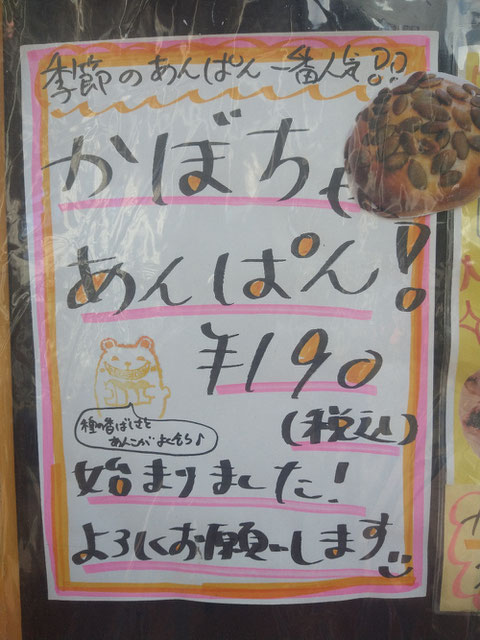 季節のあんぱん一番人気!?
かぼちゃ
あんぱん!
¥190
(税込)
種の香ばしさと
あんこがよく合う♪
始まりました!
よろしくお願いします